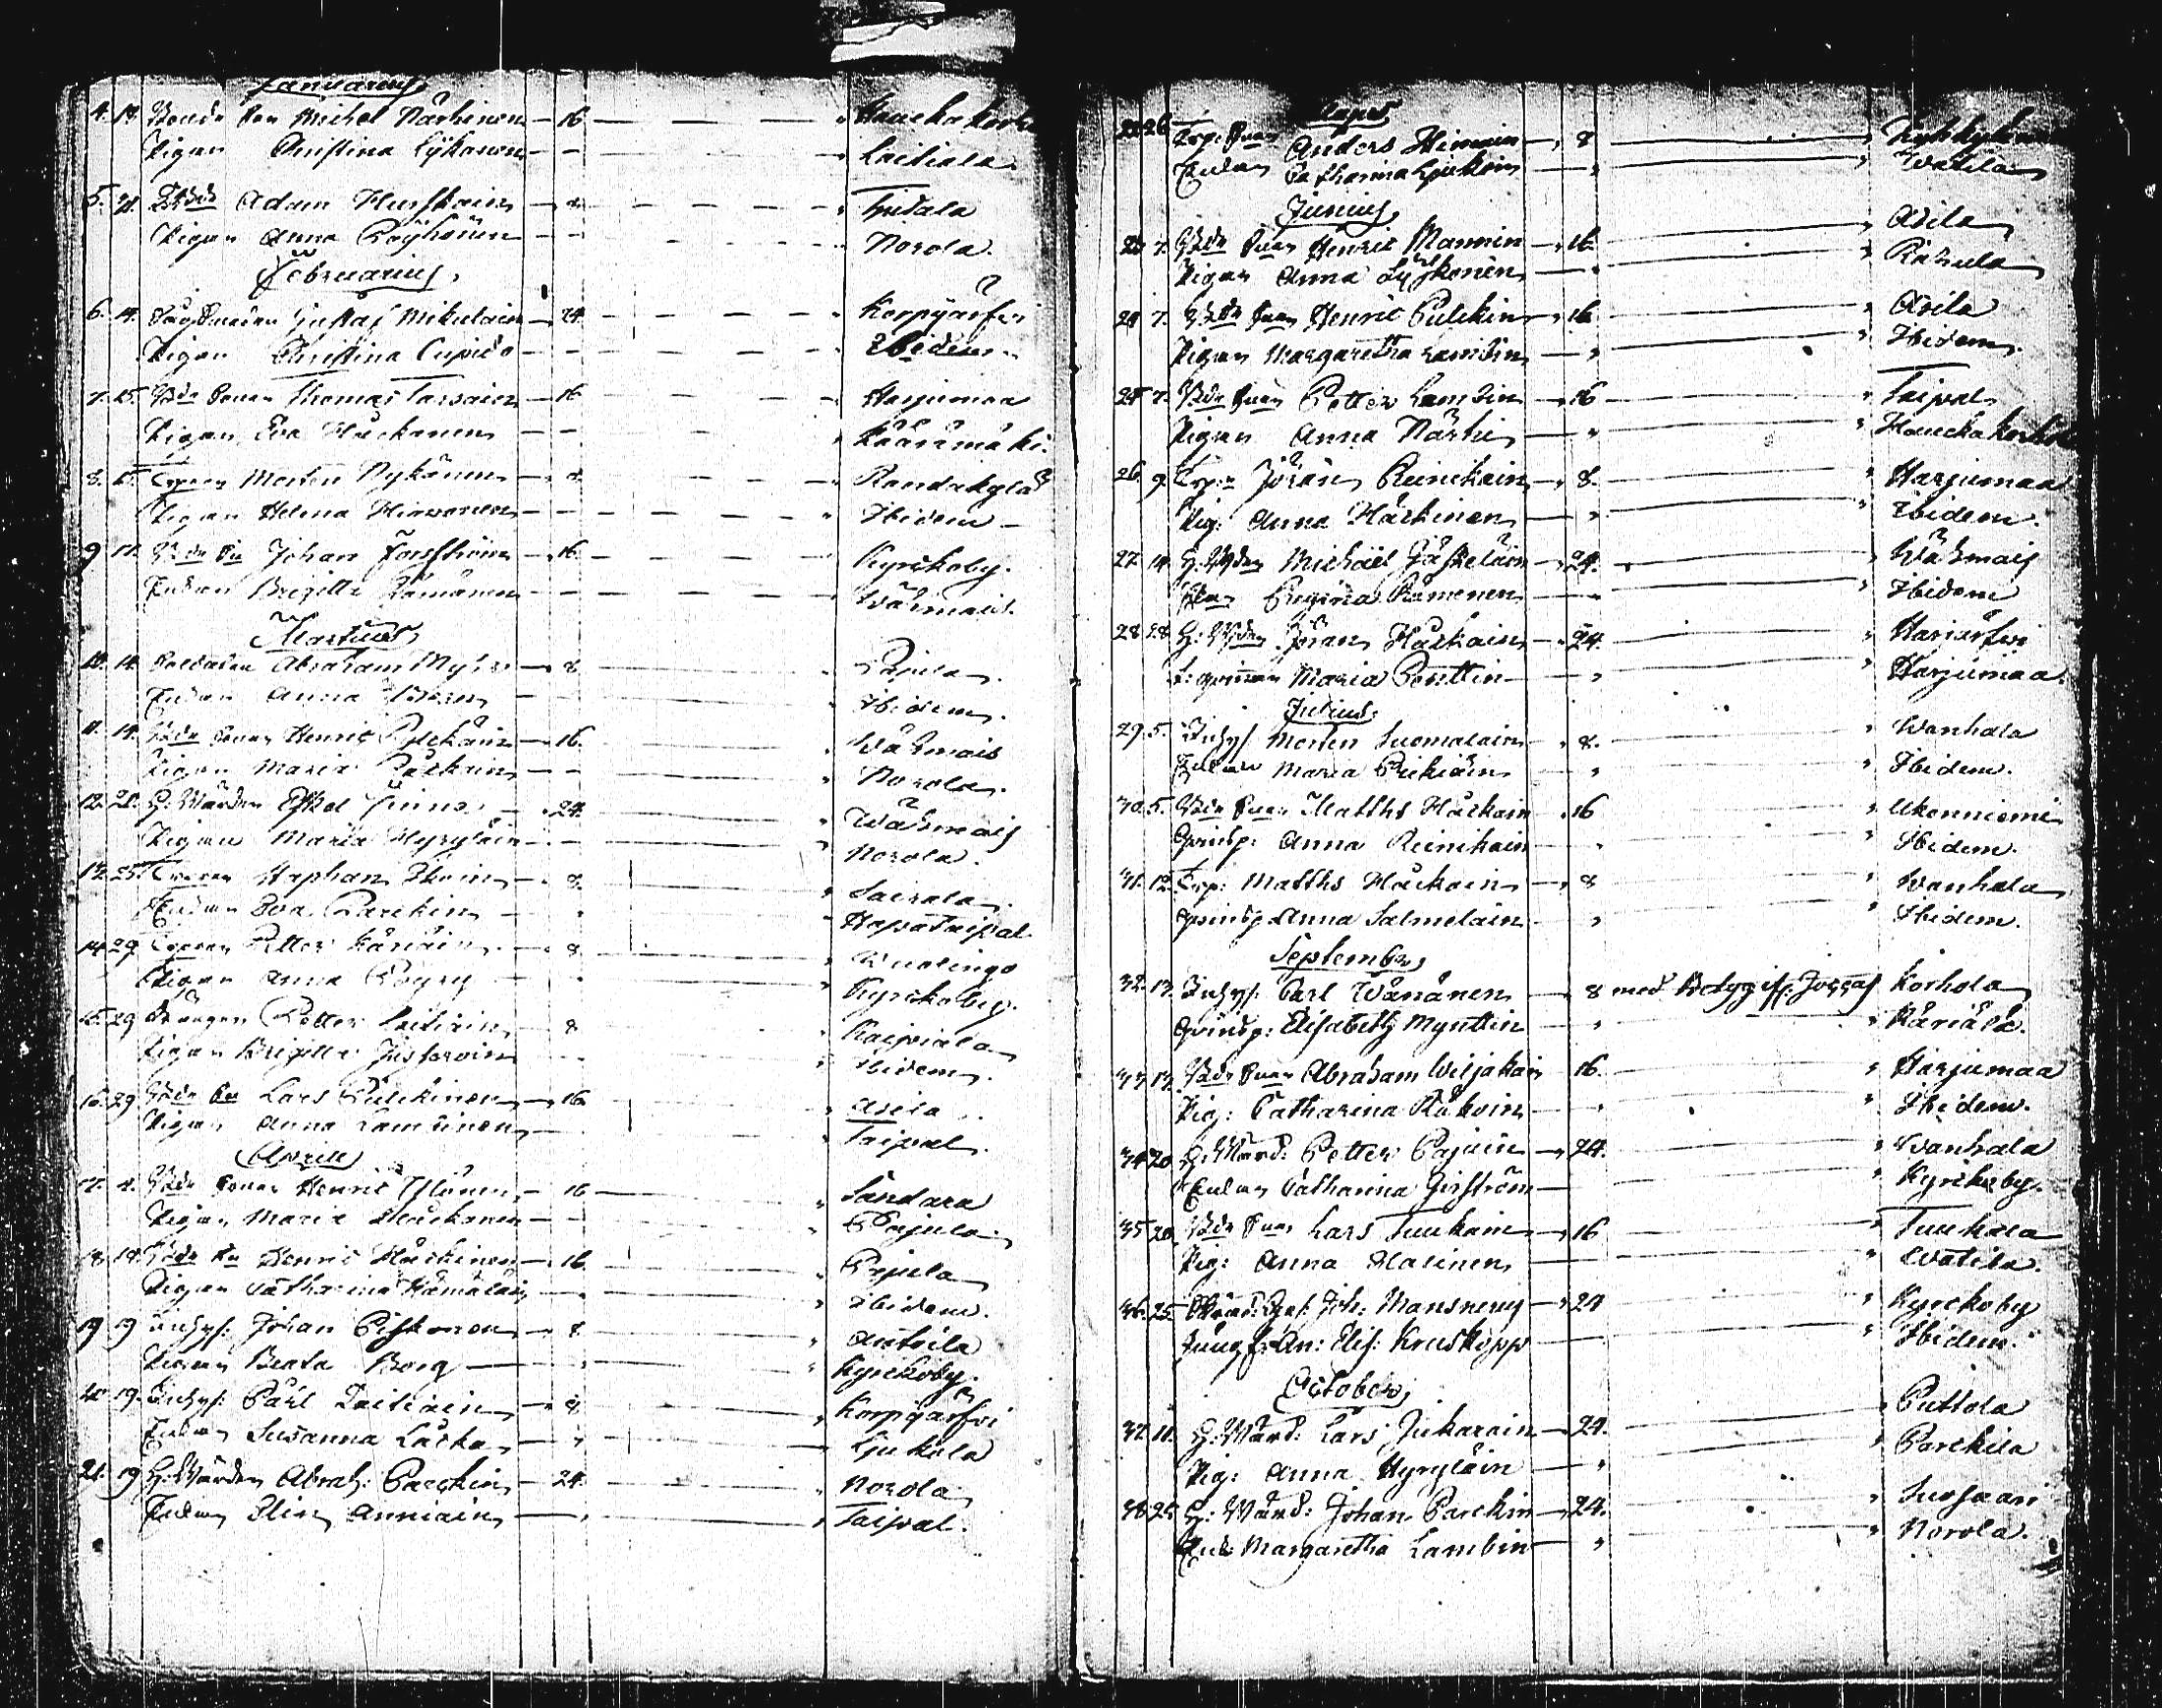 Januarius
4. 14. Bonde Son Michel Närhinen — 16 — Hauckakorho
Pigan Christina Lyikonen — Laitiala
5. 21. Adam Hurskain — 8 — Tridala
Pigan Anna Röyhönen — Norola.
Februarius
6. 14. Gustaf Mikulain — 24 — Korpijärfvi
Pigan Christina Cupido — Ibidem
7. 15. Bde Sonen Thomas Tarvain — 16 — Harjumaa
Pigan Eva Hauckanen — Käärimäki.
8. 15. Torparen Morten Nykänen — 8 — Randakylä
Pigan Helena Hirvonen — Ibidem
9 17. Bde Sn Johan Forsström — 16. — Kyrckoby.
Enkan Brigitta Hämänen — Währmais.
Martius
10. 14. Soldaten Abraham Myhr — 8 — Pajula
Enkan Anna Björn — Ibidem.
11. 14. Bde Sonen Henric Pylckäin — 16. — Währmais
Pigan Maria Parckain — Norola.
12. 21. G: Wärden Eskel Junno — 24. — Währmais
Pigan Maria Hyryläin — Norola.
13. 25. Torparen Staphan Ikoin — 8. — Sairala.
Enkan Eva Parckin — Hapataipal.
14. 29. Torparen Petter Käriäin — 8. — Wuolingo
Pigan Anna Röyry — Kyrckoby.
15. 29 Drängen Petter Laitiain — 8 — Kaipiala
Pigan Brigitta — Ibidem.
16. 29 Bde Sn Lars Pulckinen — 16. — Asila
Pigan Anna Lambinen — Taipal.
Aprill
17. 4. Bde Sonen Henric Ylönen — 16 — Sandara
Pigan Maria Hauckanen — Pajula.
18. 14. Bde Sn Henric Häckinen — 16. — Pajula
Pigan Catharina Hämäläin — Ibidem.
19 19 Inhys: Johan Piskonen — 8. — Anttila
Pigan Beata Borg — Kyrckoby.
20. 19. Inhys: Påhl Laitiain — 8. — Korpijärfvi
Enkan Susanna Lacka — Ljukola
21. 19 G: Wärden Abrah: Parckin — 24. — Norola
Enkan Elin Anniain — Taipal.
Majus
22 26 Torp: Sonen Anders Himain — 8
Enkan Catharina Ljukoin — Watila
Junius
23 7. Bde Sonen Henric Mannin — 16. — Asila
Pigan Anna Lyÿkonen — Rahula
24 7. Bde Sonen Henric Pulckin — 16 — Asila
Pigan Margaretha Lambin — Ibidem.
25 7. Bde Sonen Petter Lambin — 16 — Taipal
Pigan Anna Närhi — Hauckakorho
26. 9. Torp:n Jöran Reinikain — 8. — Harjumaa
Pig: Anna Häckinen — Ibidem.
27. 14. G: Wden Michaël Jäskeläin — 24. — Währmais
Regina Hämenen — Ibidem
28. 28. G: Wden Jöran Hackain — 24. — Harjärfvi
Maria Penttin — Harjumaa.
Julius
29. 5. Inhys: Morten Suomalain — 8. — Wanhala
Enkan Maria Pickiäin — Ibidem.
30. 5. Bde Sonen Matths Hackain — 16 — Ukonniemi
Qvinsp: Anna Reinikain — Ibidem.
31. 12. Torp: Matths Hackain — 8 — Wanhala
Qvinsp. Anna Salmelain — Ibidem.
September
32. 13. Inhys: Carl Wänänen — 8 med Betyg ifr. Joccas Korhola
Qvinsp: Elisabeth Mynttin — Käriälä.
33. 13. Bde Sonen Abraham Wiljakain 16. — Harjumaa
Pig: Catharina Häkoin — Ibidem.
34 20. G: Wärd: Petter Pajuin — 24. — Wanhala
Enkan Catharina Girström — Kyrckoby.
35 20. Bde Sonen Lars Tuukain — 16 — Tuukala
Pig: Anna Halinen — Watila.
36. 25. Joh: Mansnerus — 24 — Kyrckoby
Jungf: An: Elis: Kruskopp — Ibidem.
October
37. 11. G: Wärd: Lars Jukarain — 24. — Puttola
Pig: Anna Hyryläin — Parckila
38 25 G: Wärd: Johan Parckin — 24. — Suosaari
Enk: Margaretha Lambin — Norola.